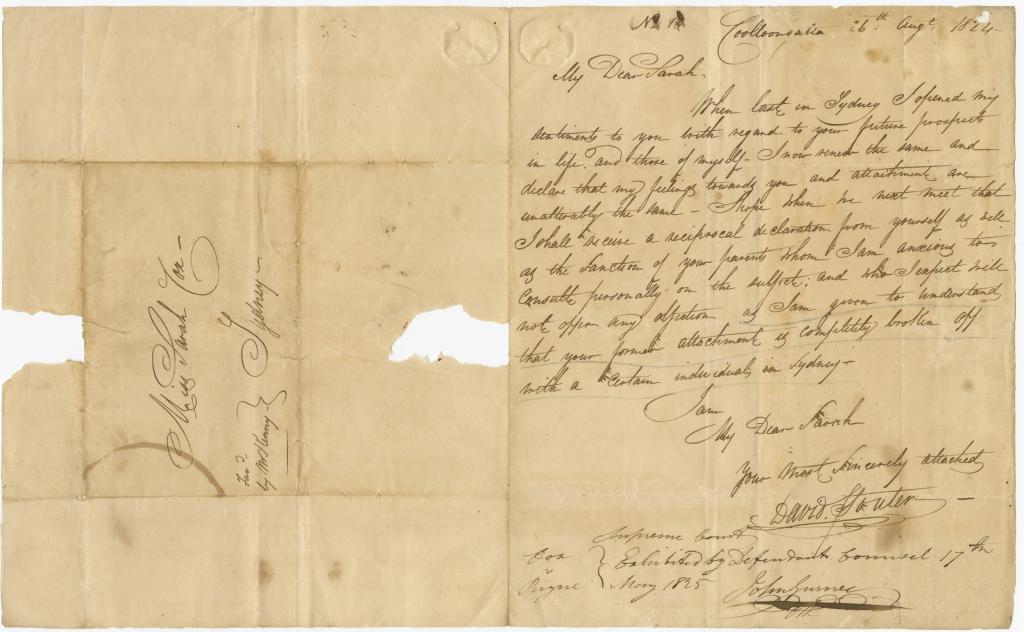 Miss Sarah Cox -
Sydney -
by Mr Kenny -
No. 1
Coolloongatta 26th Augt. 1824 -
My Dear Sarah,
When last in Sydney I opened my
Sentiments to you with regard to your future prospects
in life, and those of myself - I now renew the same and
declare that my feelings towards you and attachment are
unalterably the same - I hope when we next meet that
I shall receive a reciprocal declaration from yourself as well
as the Sanction of your parents whom I am anxious to
Consult personally on the subject: and who I expect will
not offer any objection as I am given to understand
that your former attachment is completely broken off
with a "Certain individual in Sydney -
I am
My Dear Sarah
Your Most Sincerely attached
David Souter -
Supreme Court
Cox
Exhibited by Defendants Counsel 17th
Payne
May 1825
John Gurner